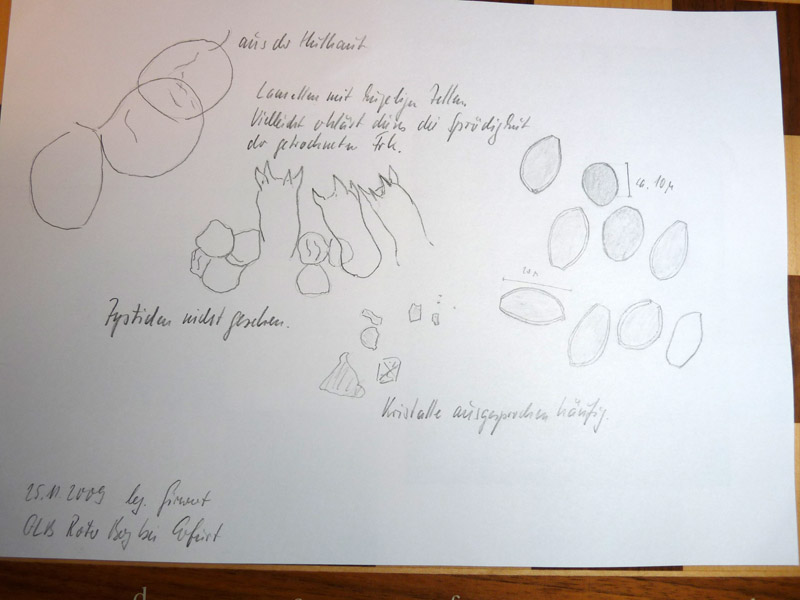 aus der Huthaut
Lamellen mit kugeligen Zellen
Vielleicht erklärt dieses die Sprödigkeit
der getrockneten Frk.
ca. 10 µ
10 µ
Zystiden nicht gesehen.
?
Kristalle ausgesprochen häufig.
25.11.2009 leg. Girwert
GLB Roter Berg bei Erfurt